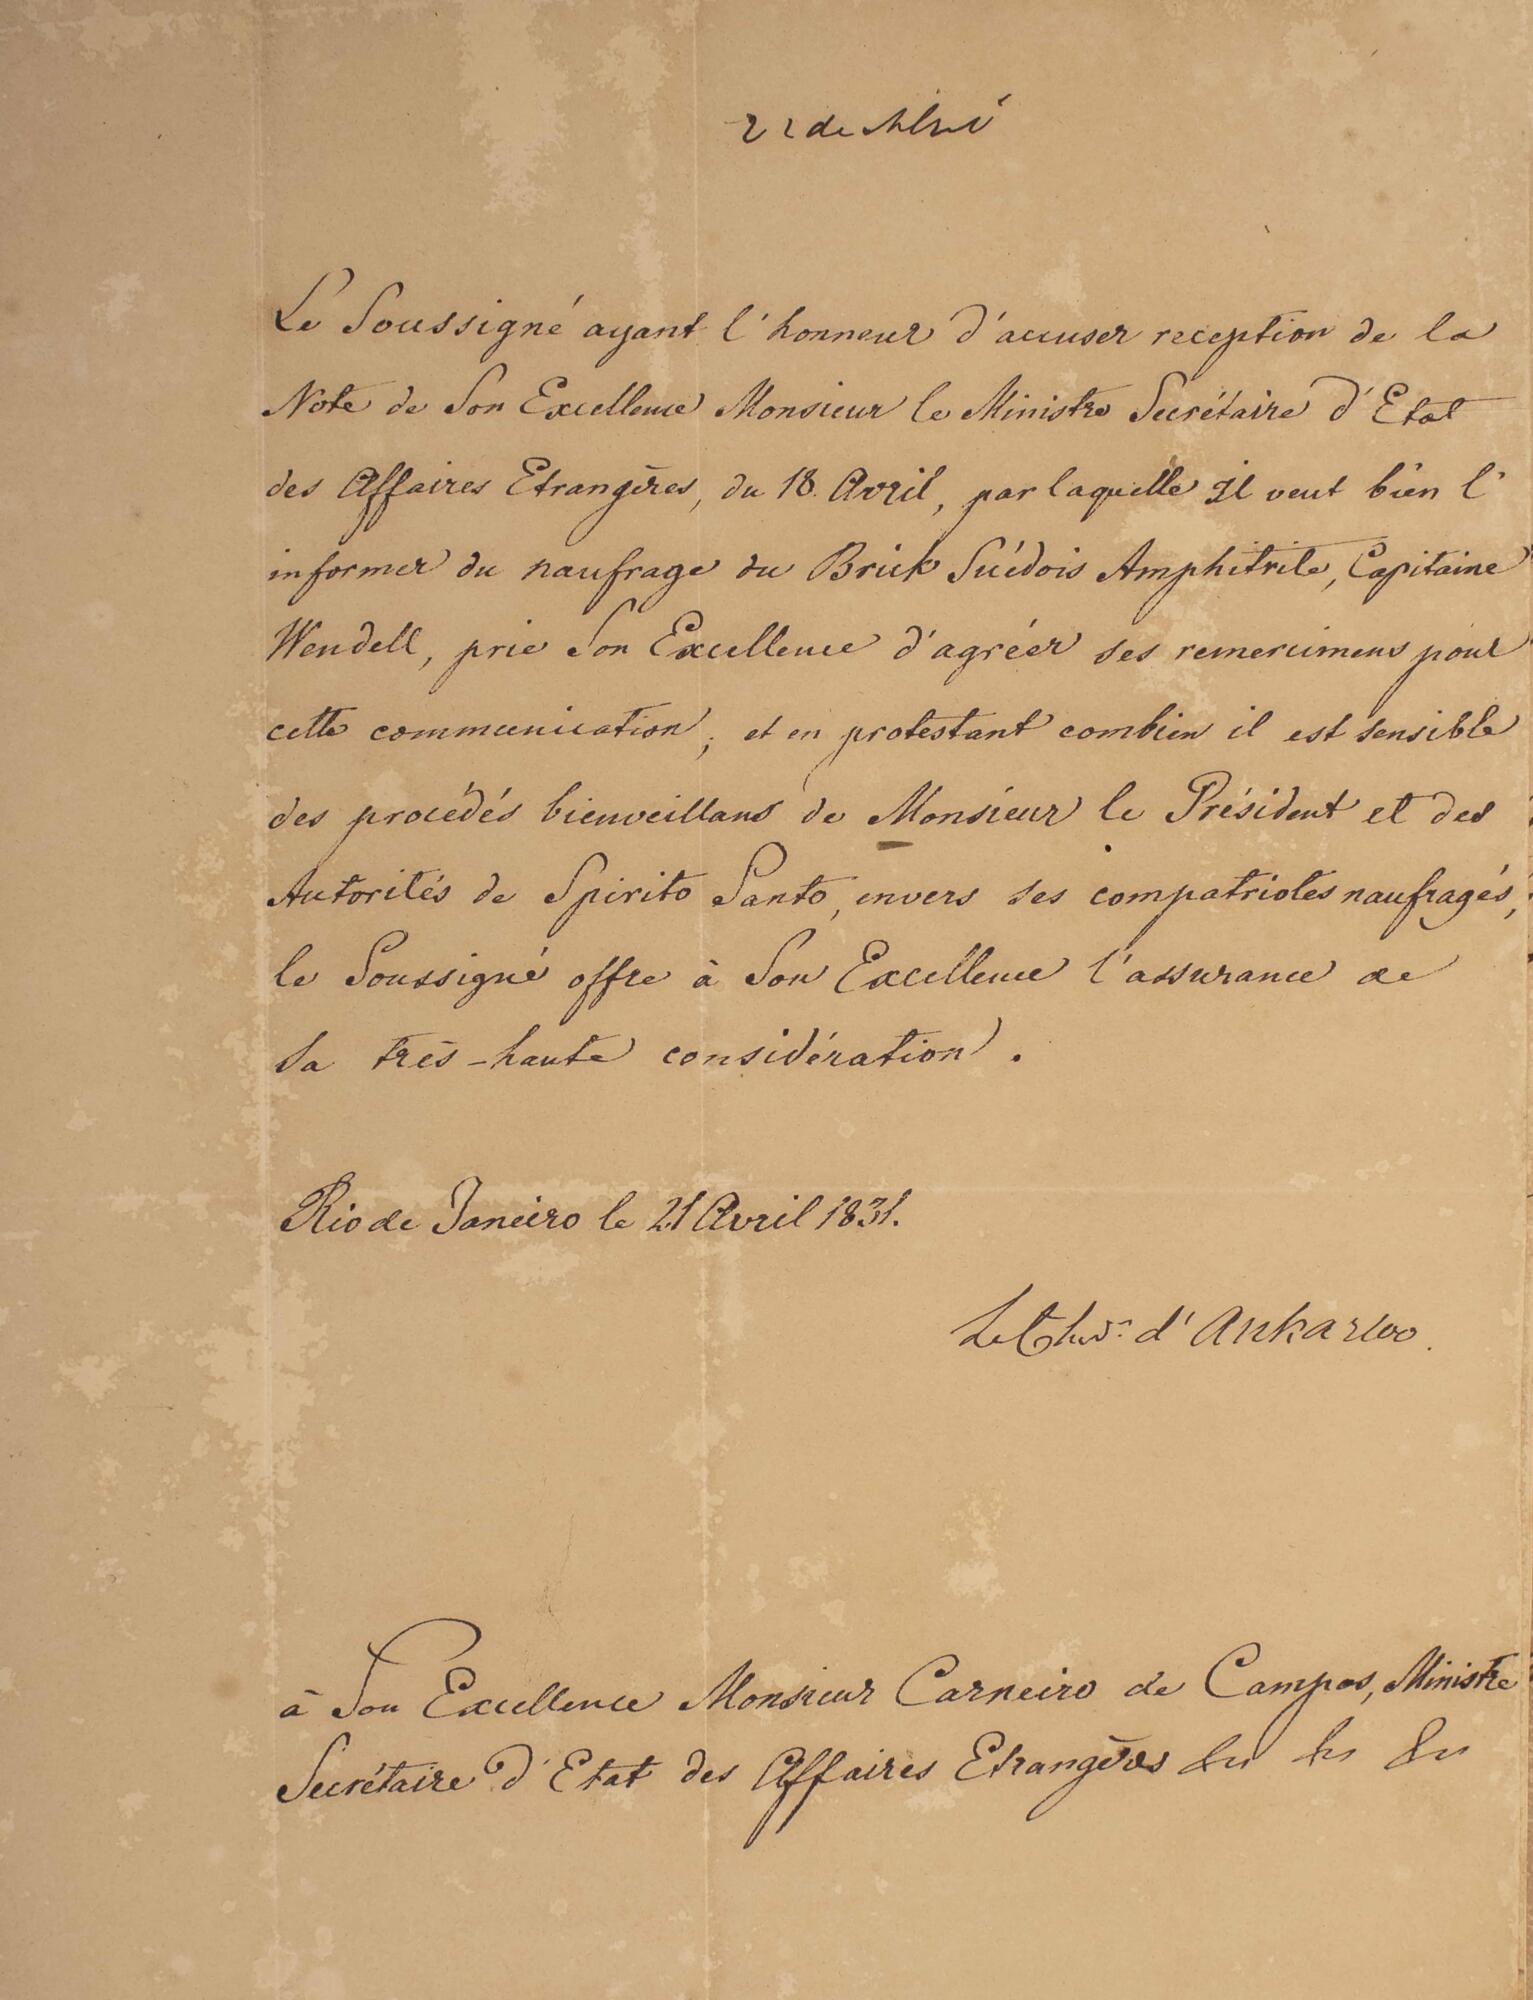 22 de Abril
Le Soussigné ayant l'honneur d'accuser reception de la
Note de Son Excellence Monsieur le Ministre Secrétaire d'Etat
des Affaires Etrangères, du 18. Avril, par laquelle Il veut bien l'
informer du naufrage du Brick Suédois Amphitrite, Capitaine
Wendell, prie Son Excellence d'agréer ses remercimens pour
cette communication; et en protestant combien il est sensible
des procédés bienveillans de Monsieur le Président et des
Autorités de Spirito Santo, envers ses compatriotes naufragés,
le Soussigné offre à Son Excellence l'assurance de
sa très-haute considération.
Rio de Janeiro le 21 Avril 1831.
Le Chev.r d'Ankarloo.
à Son Excellence Monsieur Carneiro de Campos, Ministre
Secrétaire d'Etat des Affaires Etrangères